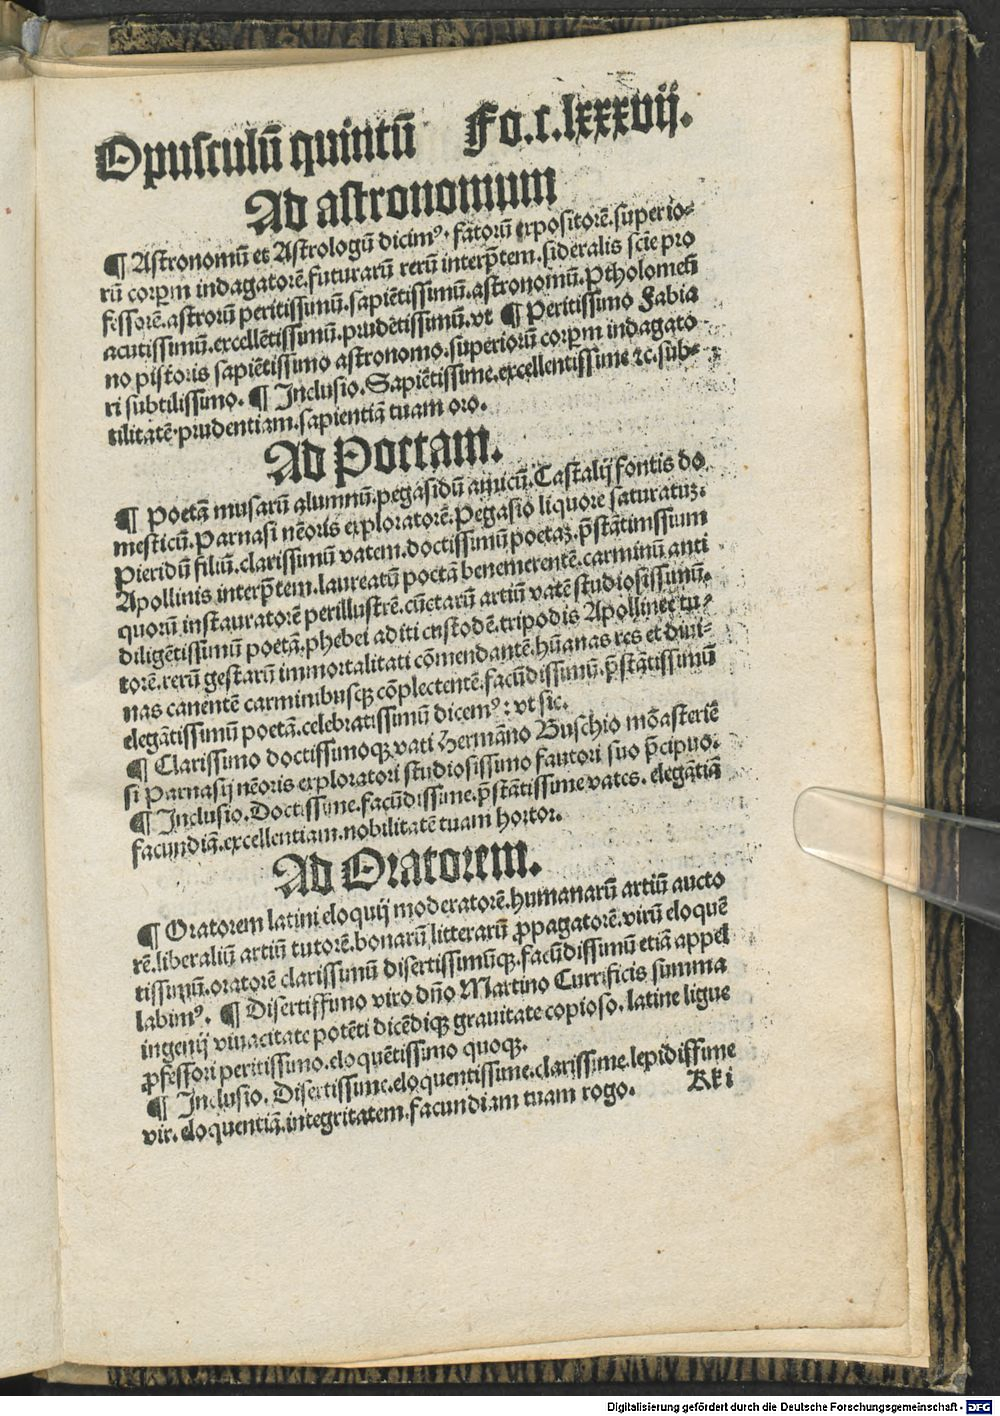 Opusculū quintū Fo.c.lxxxvij.
Ad astronomum
¶ Astronomū et Astrologū dicimꝰ. fatorū expositorē.superio-
rū corpꝝm indagatorē.futurarū rerū interp̄tem.sideralis scīe pro
fessorē.astrorū peritissimū.sapiētissimū.astronomū.Ptholomeū
acutissimū.excellētissimū.prudētissimū.vt ¶ Peritissimo Fabia
no pistoris sapiētissimo astronomo.superiorū corpꝝm indagato
ri subtilissimo. ¶ Inclusio. Sapiētissime.excellentissime ꝛc. sub-
tilitatē.prudentiam.sapientiā tuam oro.
Ad Poetam.
¶ Poetā musarū alumnū.pegasidū amicū.Castalij fontis do
mesticū.Parnasi nēoris exploratorē.Pegasio liquore saturatuꝫ.
Pieridū filiū.clarissimū vatem.doctissimū poetaꝫ.p̄stātimssium
Apollinis interp̄tem.laureatū poetā benemerentē.carminū anti
quorū instauratorē perillustrē.cūctarū artiū vatē studiosissimū.
diligētissimū poetā.phebei aditi cnstodē.tripodis Apollinee tu-
torē.rerū gestarū immortalitati cōmendantē.hūanas res et diui-
nas canentē carminibusqꝫ cōplectentē.facūdissimū.p̄stātissimū
elegātissimū poetā.celebratissimū dicemꝰ: vt sic.
¶ Clarissimo doctissimoqꝫ vati Hermāno Buschio mōasteriē
si Parnasij nēoris exploratori studiosissimo fautori suo p̄cipuo.
¶ Inclusio. Doctissime.facūdissime.p̄stātissime vates. elegātiā
facundiā.excellentiam.nobilitatē tuam hortor.
Ad Oratorem.
¶ Oratorem latini eloquij moderatorē.humanarū artiū aucto
rē.liberaliū artiū tutorē.bonarū litterarū ꝓpagatorē.virū eloquē
tissimū.oratorē clarissimū disertissimūqꝫ.facūdissimū etiā appel
labimꝰ. ¶ Disertissimo viro dño Martino Currificis summa
ingenij viuacitate potēti dicēdiqꝫ grauitate copioso. latine ligue
ꝓfessori peritissimo.eloquētissimo quoqꝫ.
¶ Inclusio. Disertissime.eloquentissime.clarissime.lepidissime
vir. eloquentiā.integritatem.facundiam tuam rogo.
Kk i
Digitalisierung gefördert durch die Deutsche Forschungsgemeinschaft - DFG